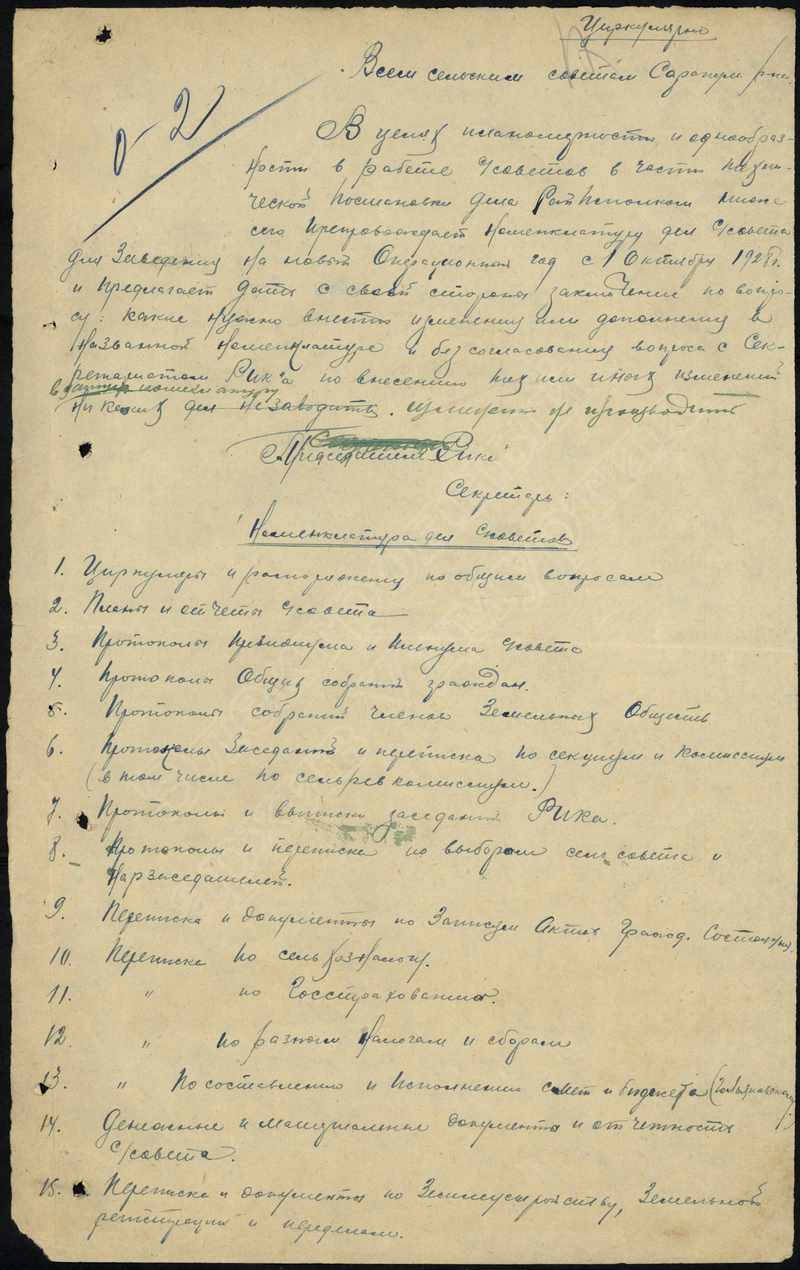 Циркулярно
Всем сельским советам Сарапул р-на.
2
В целях планомерности и однообраз-
ности в работе с/советов в части техни-
ческой постановки дела Райисполком
сего препровождает номенклатуру дел с/совета
для заведения на новый операционный год с 1 октября 1928 г.
и предлагает дать с своей стороны заключение по вопро-
су: какие нужно внести изменения или дополнения в
названной номенклатуре и без согласования вопроса с Сек-
ретариатом РИК'а по внесению тех или иных изменений
в данную номенклатуру
никаких дел не заводить. не производить
Председатель РИКа
Секретарь:
Номенклатура дел с/советов
1. Циркуляры и распоряжения по общим вопросам
2. Планы и отчеты с/совета
3. Протоколы президиума и пленума с/совета
4. Протоколы общих собраний граждан.
5. Протоколы собраний членов земельных обществ
6. Протоколы заседаний и переписка по секциям и комиссиям
(в том числе по сельревкомиссиям.)
7. Протоколы и выписки заседаний РИКа.
8. Протоколы и переписка по выборам сельсовета и
нарзаседателей.
9. Переписка и документы по Записям Актов Гражд. Состояния.
10. Переписка по сельхозналогу.
11. " по Госстрахованию.
12. " по разным налогам и сборам
13. " по составлению и исполнению смет и бюджета
14. Денежные и материальные документы и отчетность
с/совета.
15. Переписка и документы по землеустройству, земельной
регистрации и переделам.